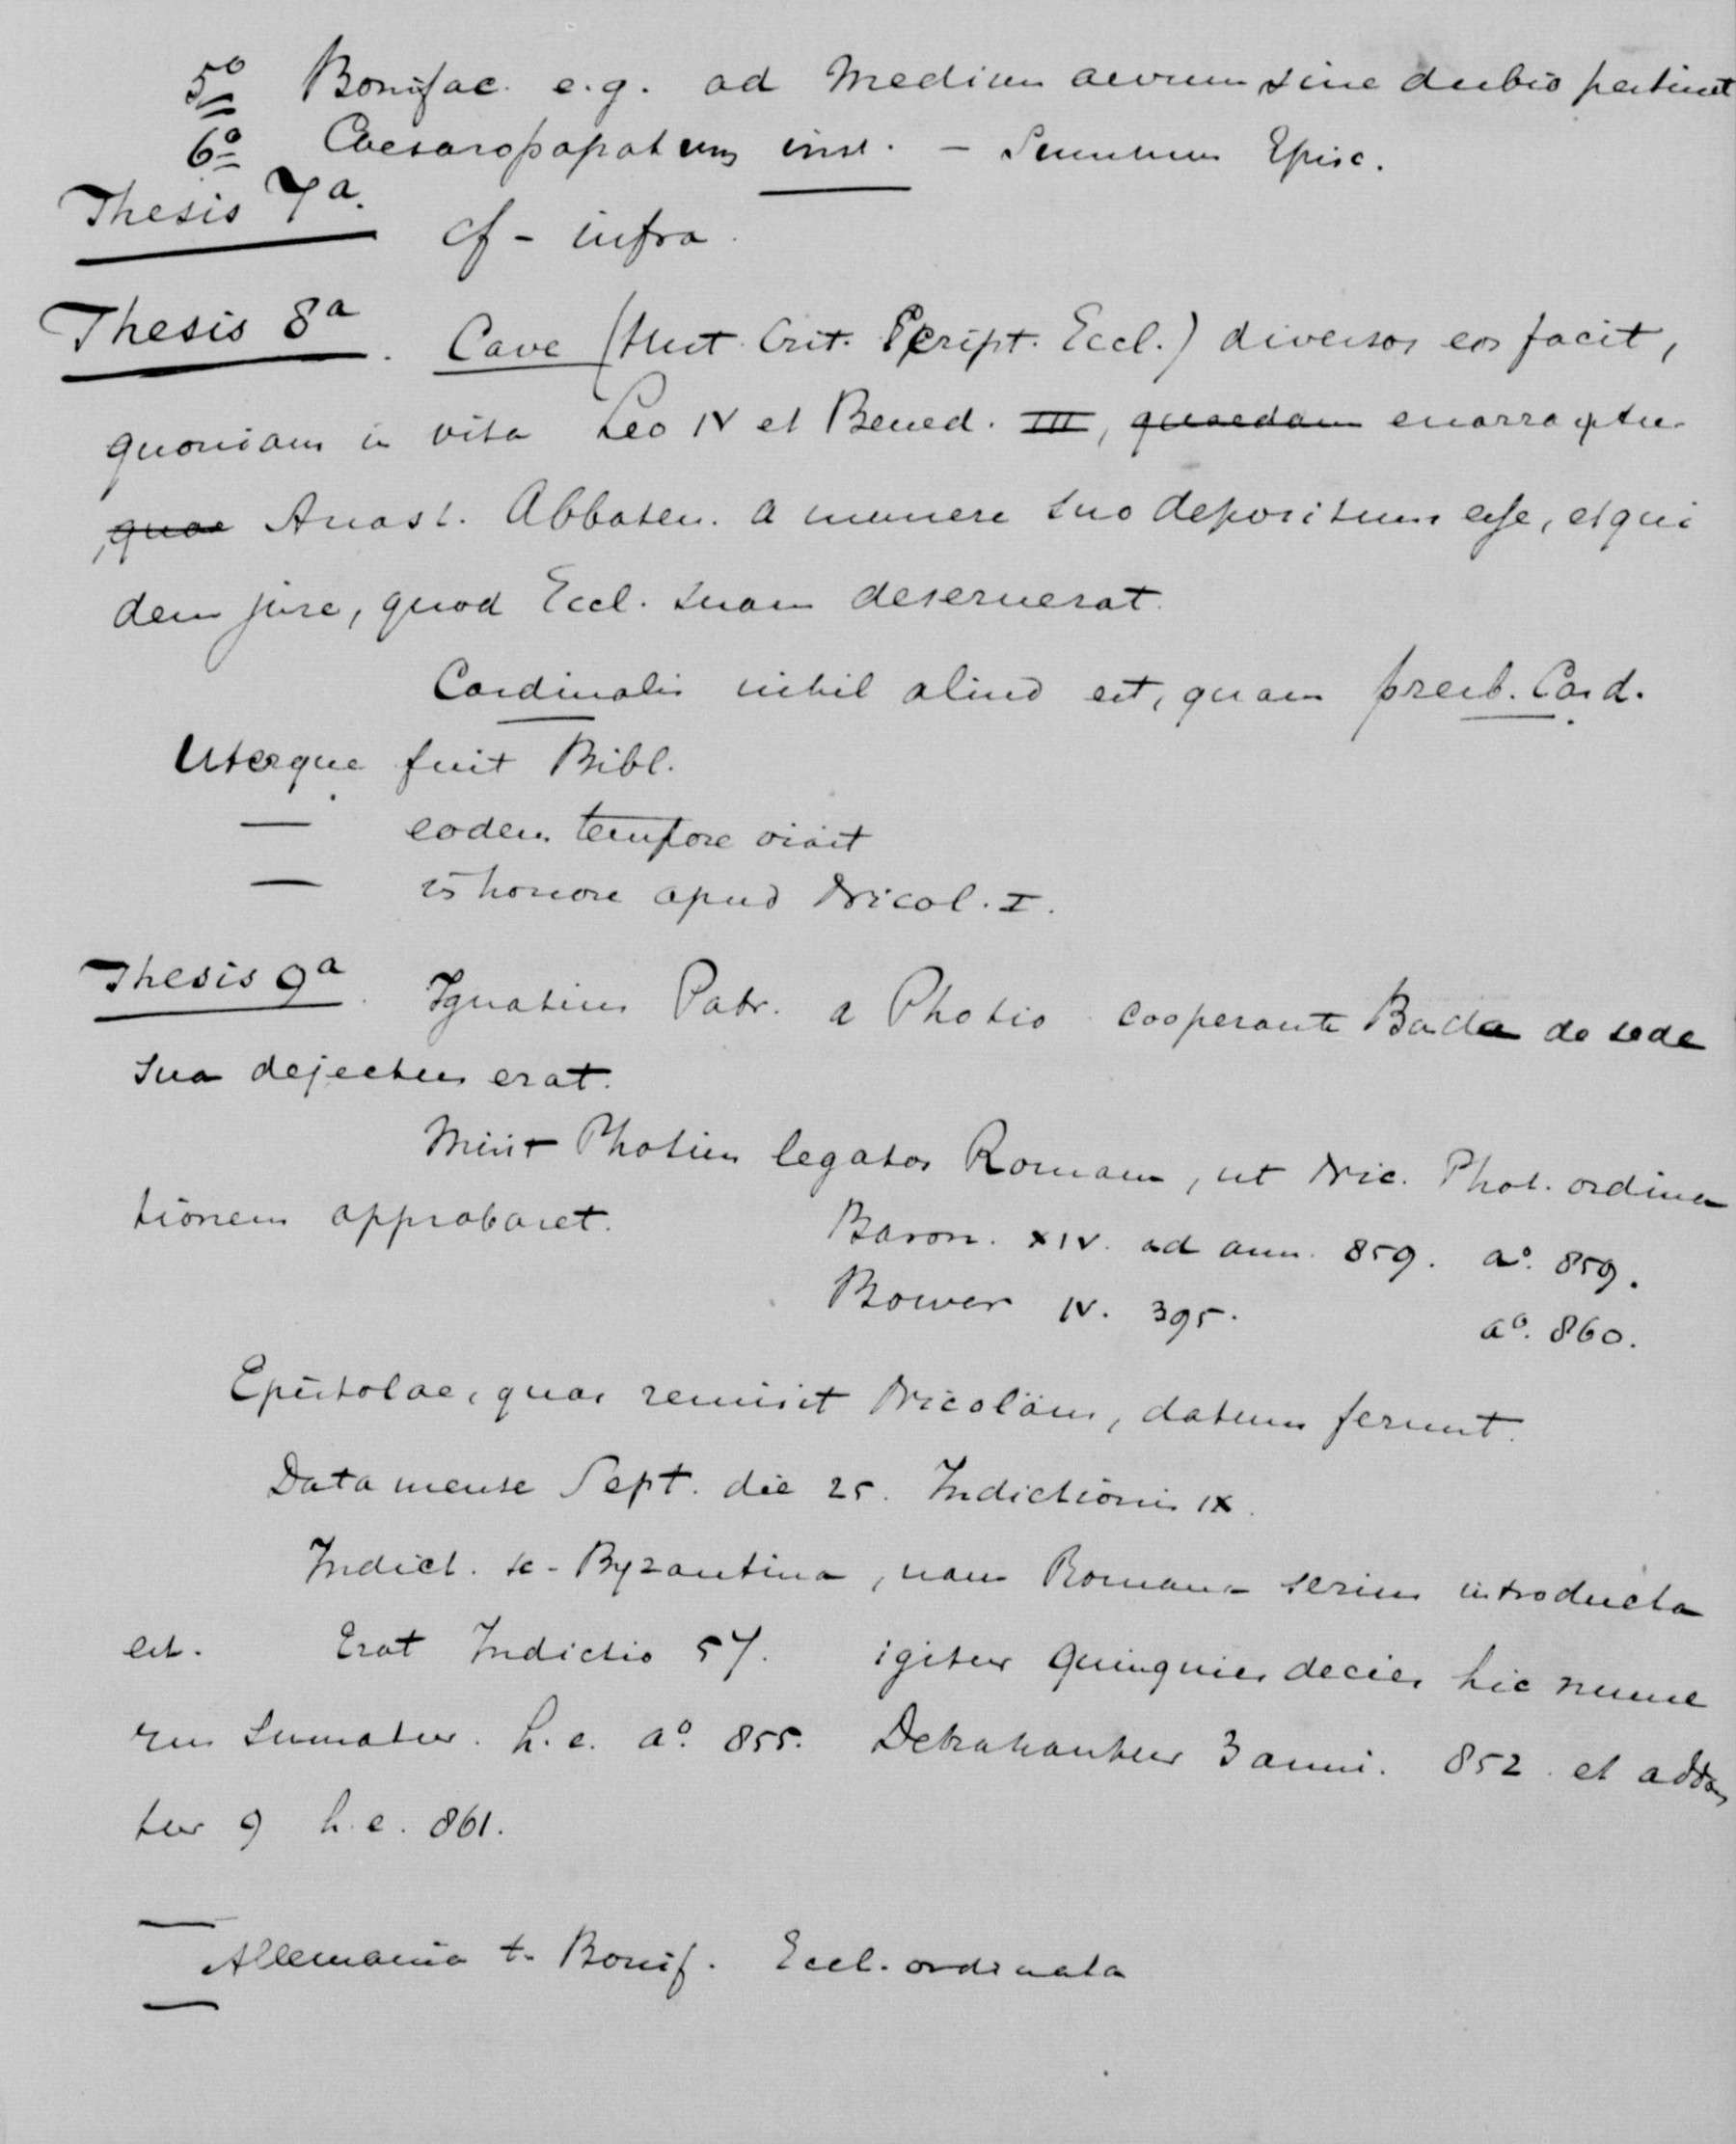 5º Bonifac. e.g. ad Medium aevum sine dubio pertinet
6º Caesaropapatum inst. - Summum Episc.
Thesis 7a. cf - infra.
Thesis 8a. Cave (Hist. Crit. Script. Eccl.) diversos eos facit,
quoniam in vita Leo IV et Bened. III, quaedam enarratur
, quae Anast. Abbatem. a munere suo depositum esse, et qui
dem jure, quod Eccl. suam deseruerat.
Cardinalis nihil aliud est, quam presb. Card.
Uterque fuit Bibl.
— eodem tempore vixit
— in honore apud Nicol. I.
Thesis 9a. Ignatius Patr. a Photio cooperante Barda de sede
sua dejectus erat.
Misit Photius legatos Romam, ut Nic. Phot. ordina
tionem approbaret.
Baron. XIV. ad ann. 859. aº. 859.
Bower IV. 395. aº. 860.
Epistolae, quas remisit Nicolaus, datum ferunt.
Data mense Sept. die 25. Indictionis IX.
Indict. sc. Byzantina, nam Romana serius introducta
est. Erat Indictio 57. igitur quinquies decies hic nume
rus sumatur. h.e. aº 855. Detrahantur 3 anni. 852. et addan
tur 9 h.e. 861.
Allemania t. Bonif. Eccl. ordinata